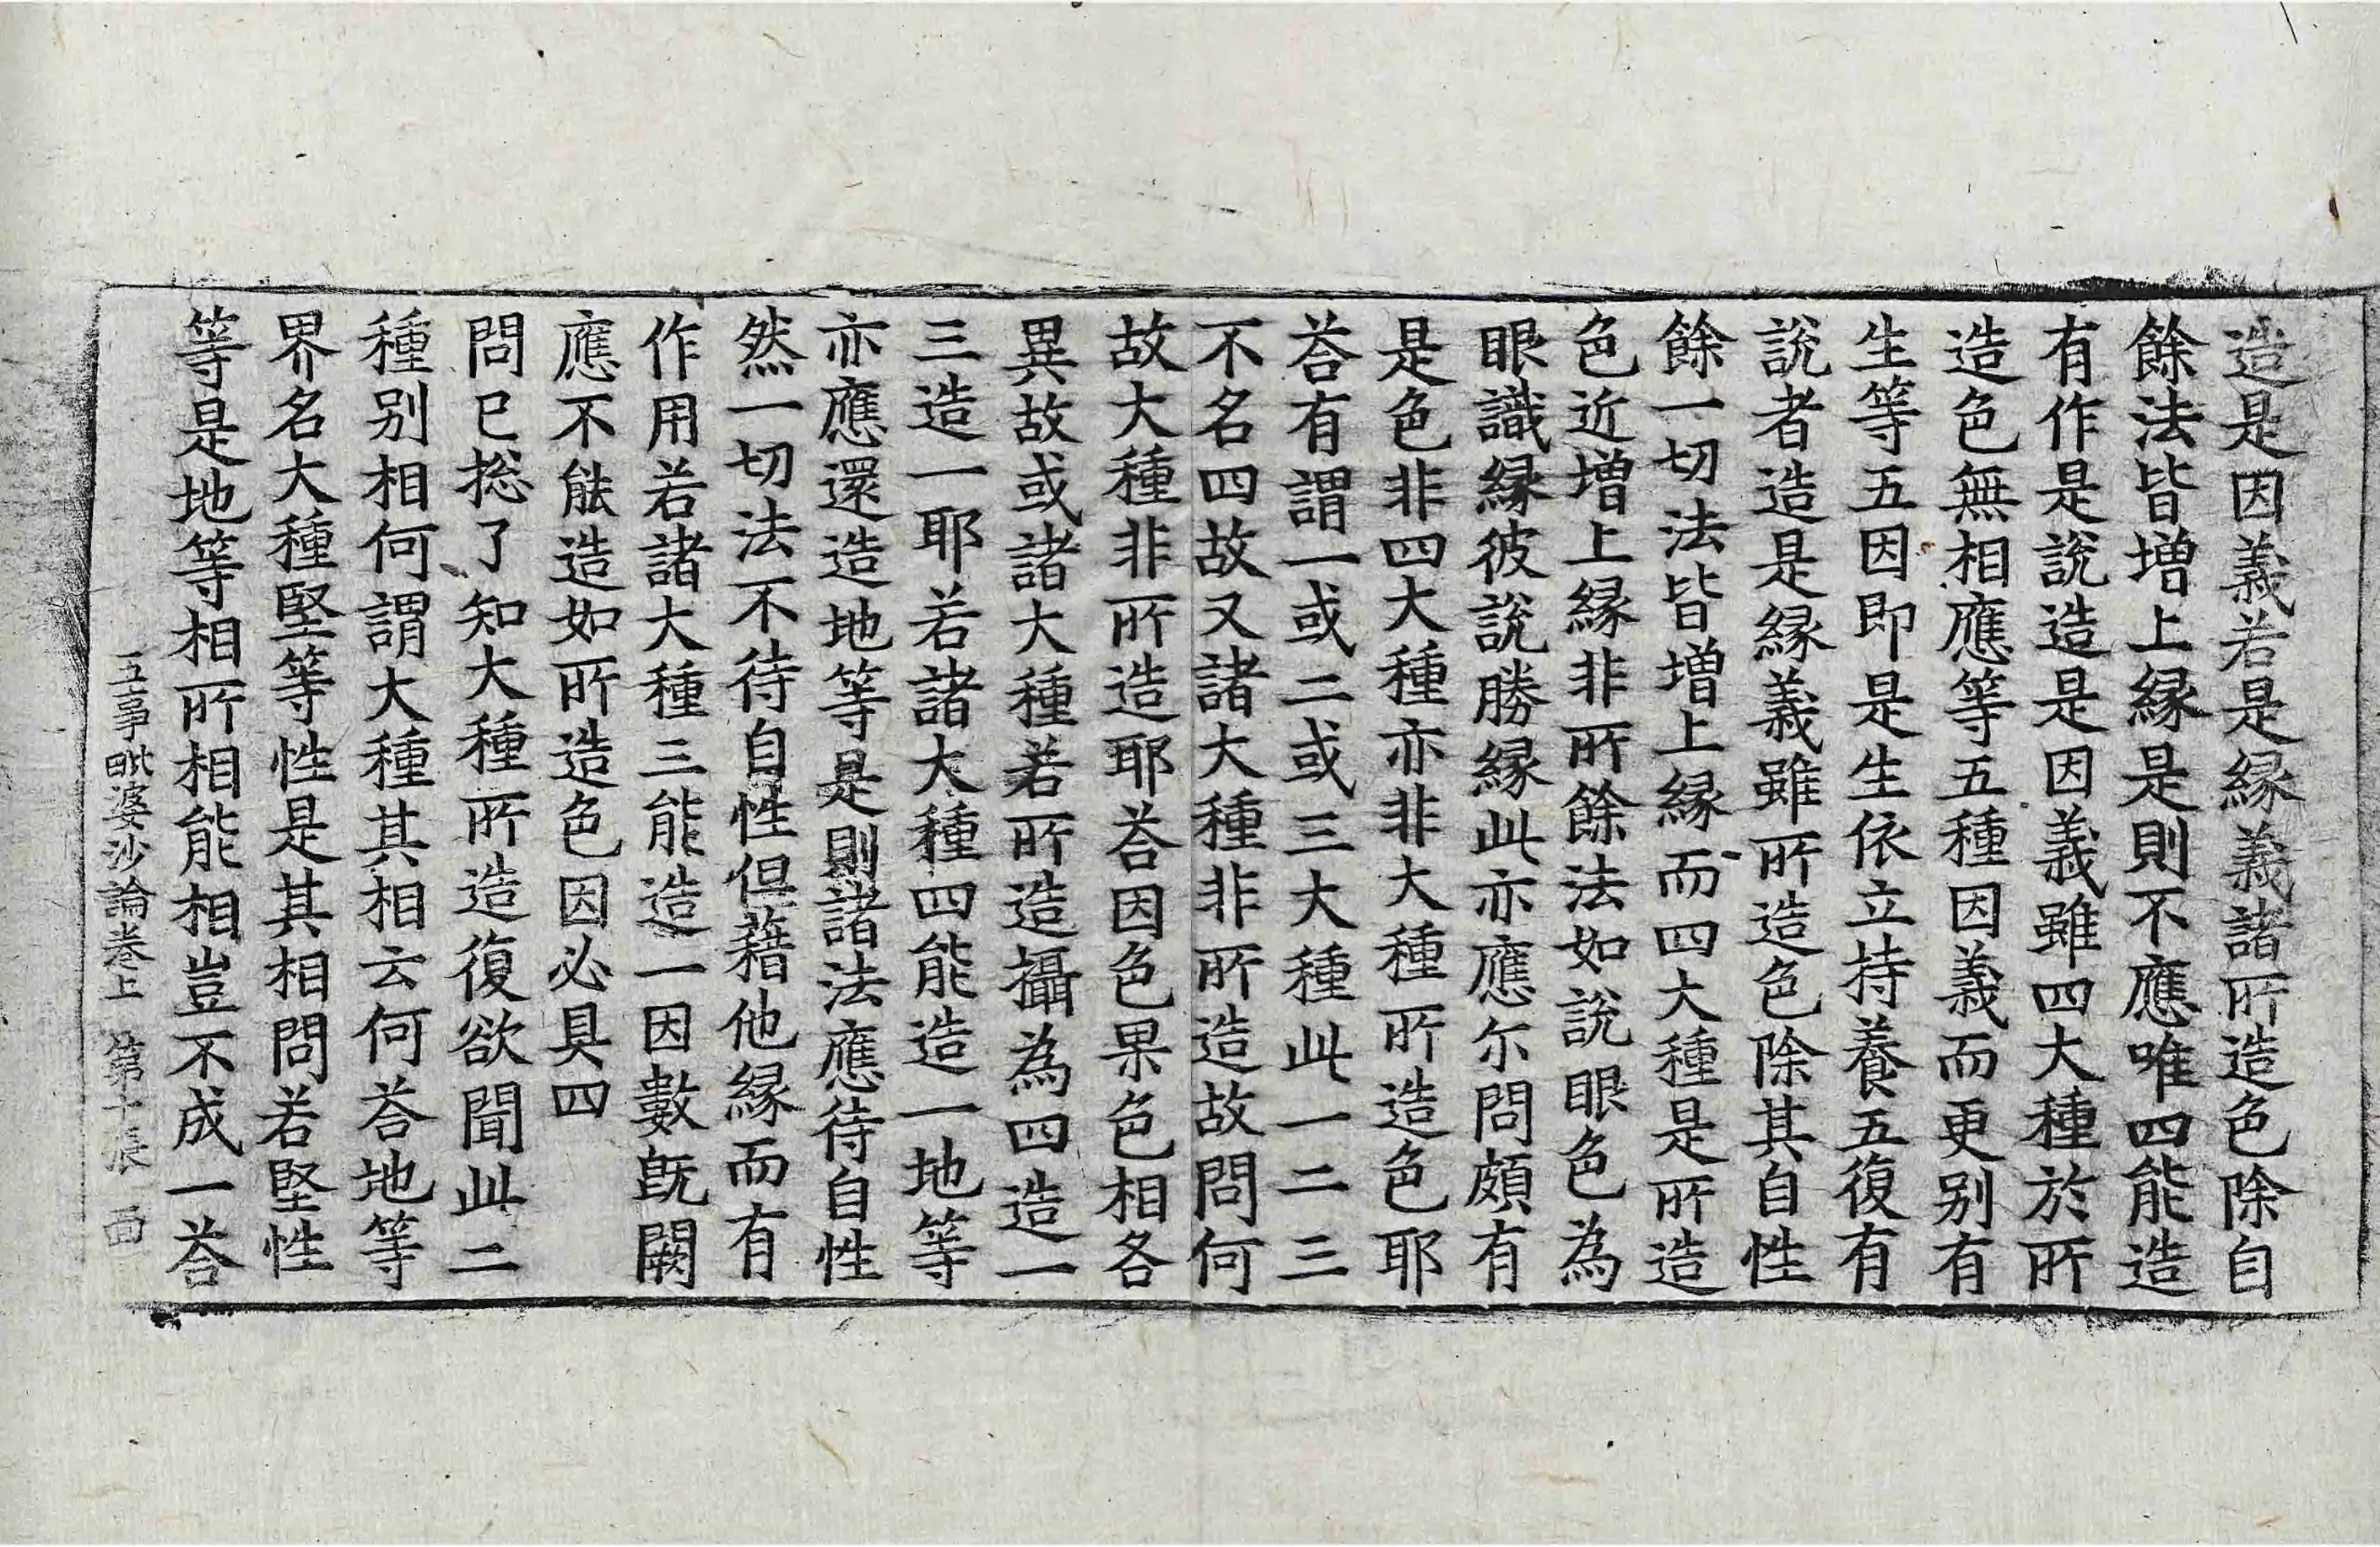 造是因義若是縁義諸所造色除自
餘法皆增上縁是則不應唯四能造
有作是說造是因義雖四大種於所
造色無相應等五種因義而更别有
生等五因即是生依立持養五復有
說者造是縁義雖所造色除其自性
餘一切法皆增上縁而四大種是所造
色近增上縁非所餘法如說眼色為
眼識縁彼說勝縁此亦應尓問頗有
是色非四大種亦非大種所造色耶
荅有謂一或二或三大種此一二三
不名四故又諸大種非所造故問何
故大種非所造耶荅因色果色相各
異故或諸大種若所造攝為四造一
三造一耶若諸大種四能造一地等
亦應還造地等是則諸法應待自性
然一切法不待自性但藉他縁而有
作用若諸大種三能造一因數旣闕
應不能造如所造色因必具四
問已揔了知大種所造復欲聞此二
種别相何謂大種其相云何荅地等
界名大種堅等性是其相問若堅性
等是地等相所相能相豈不成一荅
五事毗婆沙論卷上　第十張　面